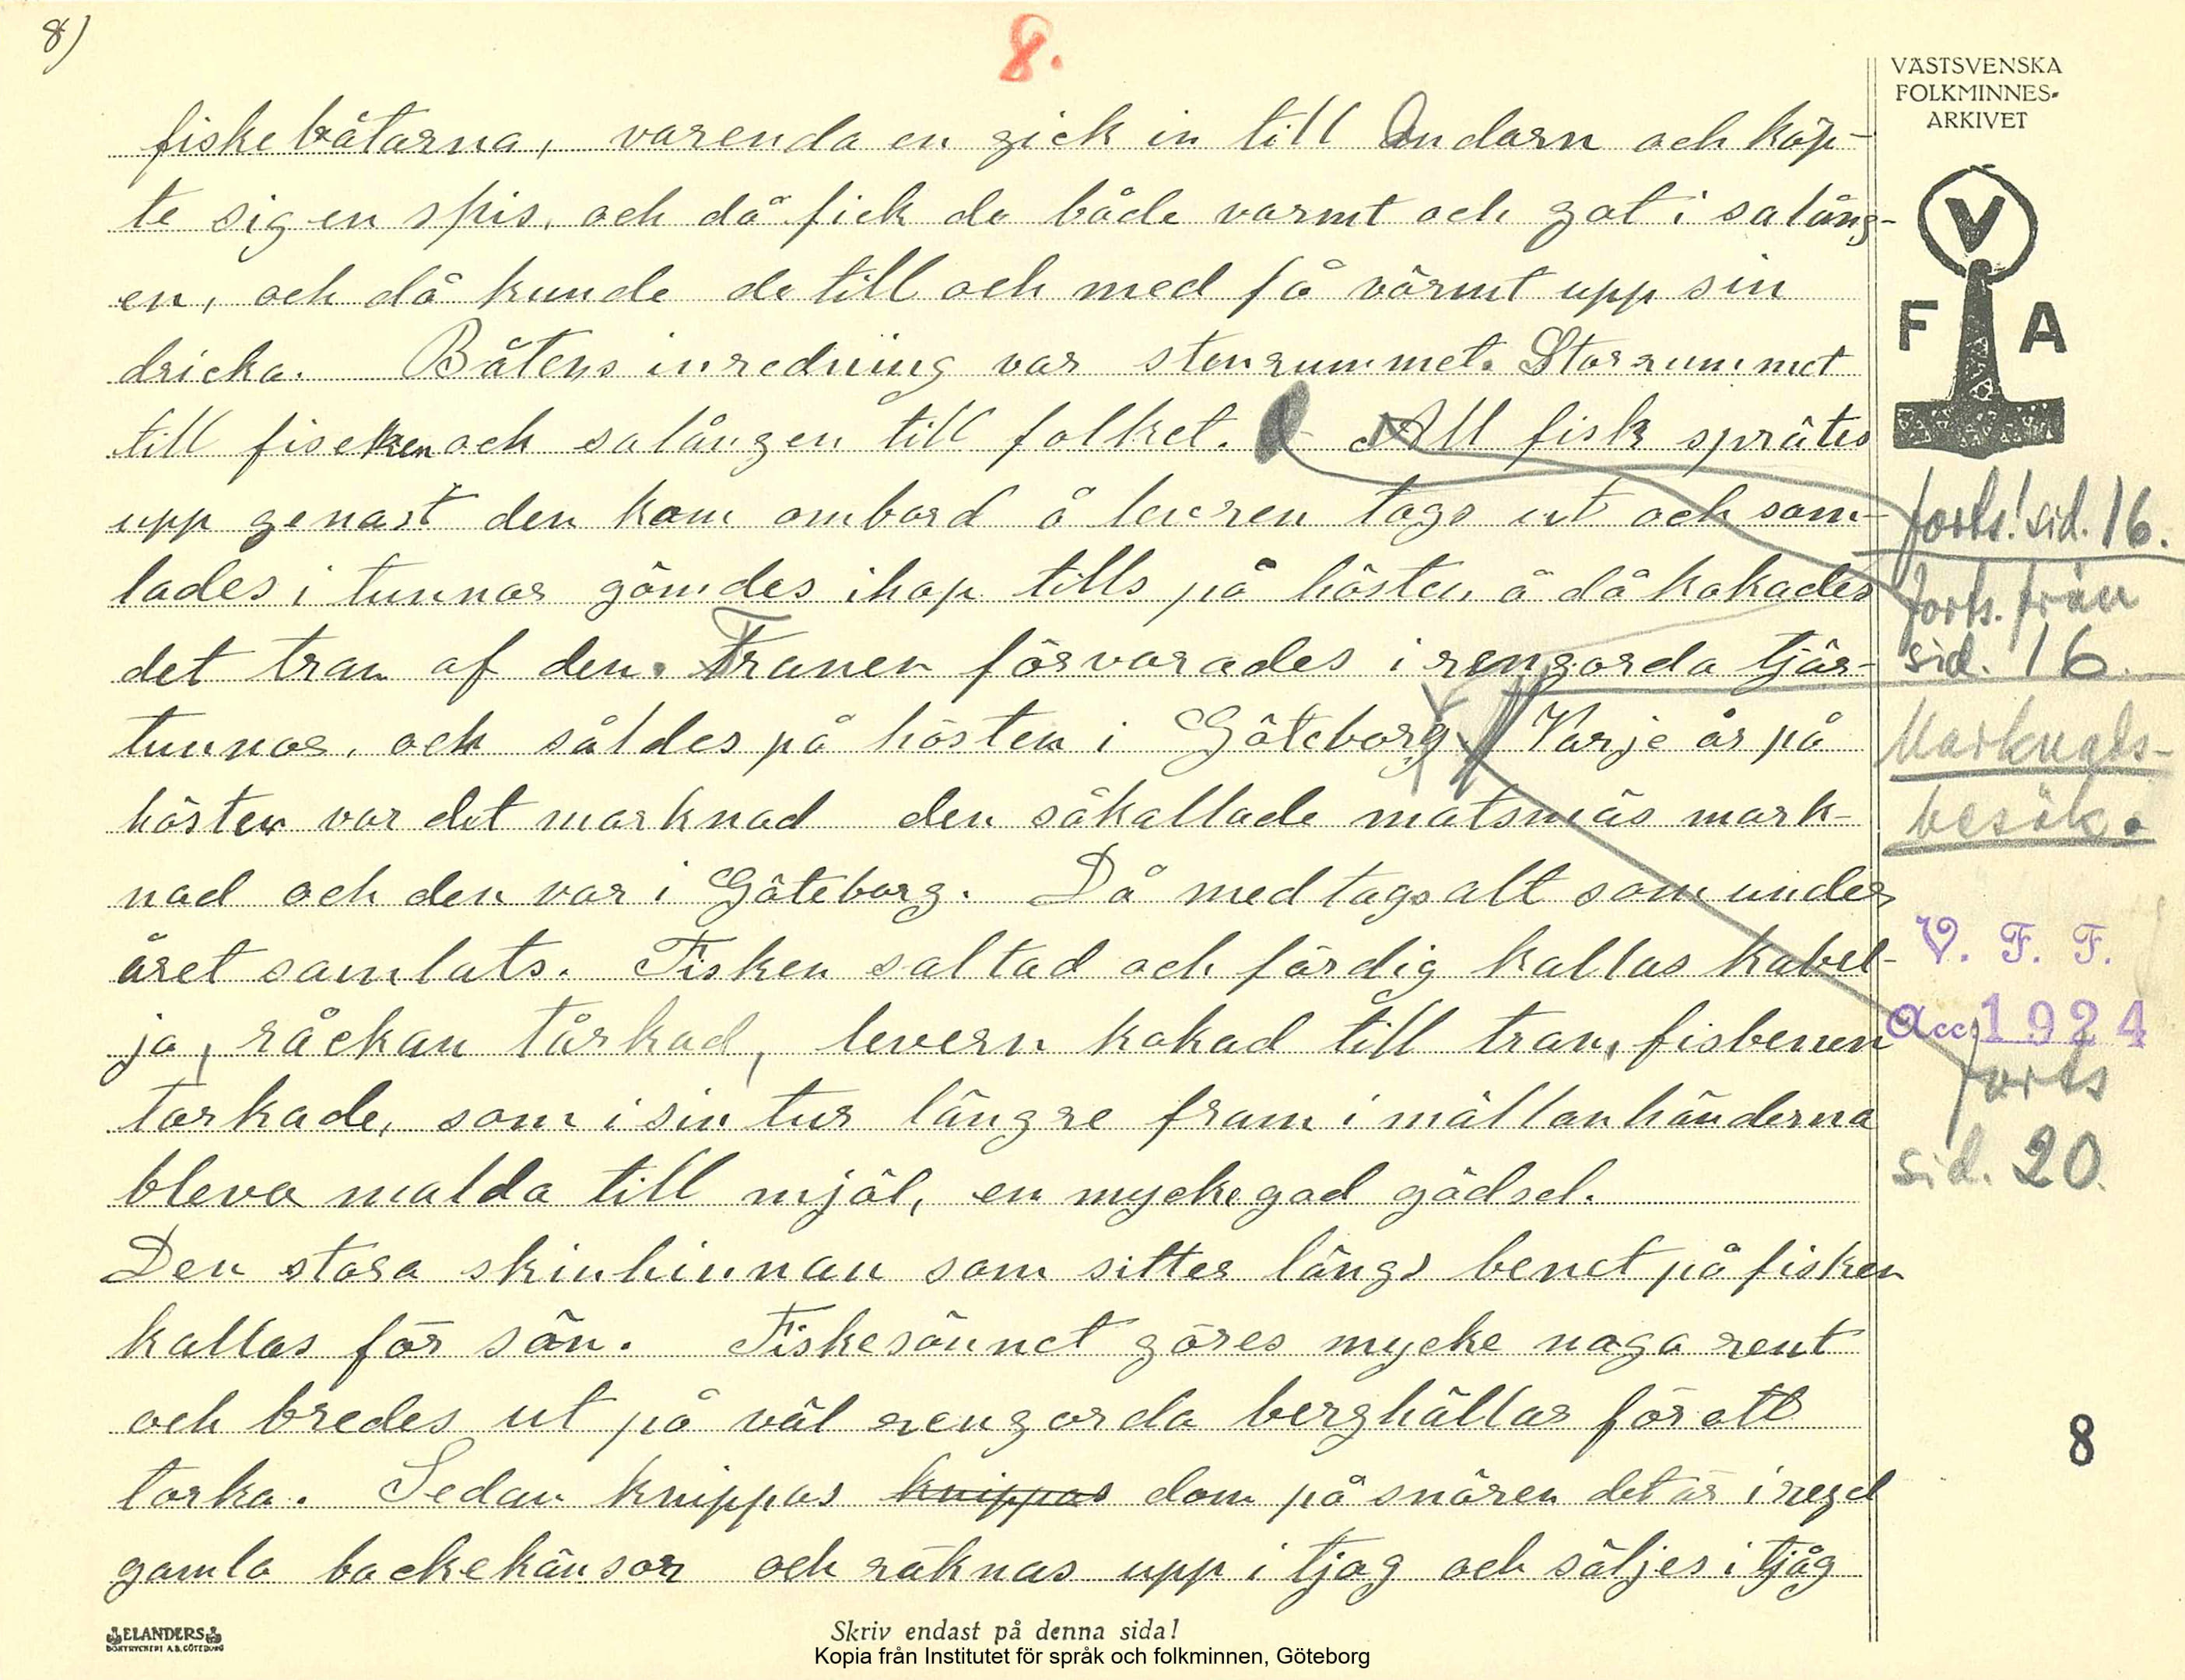 8)
8.
VÄSTSVENSKA
FOLKMINNES-
ARKIVET
V
F A
fiskebåtarna, varenda en gick in till Öndarn och köp-
te sig en spis, och då fick de både varmt och got i salång-
en, och då kunde de till och med få värmt upp sin
dricka. Båtens inredning var storrummet. Storrummet
till fisken och salången till folket. All fisk sprätes
upp genast den kom ombord å levren togs ut och sam-
lades i tunnor gömdes ihop tills på hösten å då kokades
det tran af den. Tranen förvarades i rengorda tjär-
tunnor, och såldes på hösten i Göteborg. Varje år på
hösten var det marknad den såkallade matsmäs mark-
nad och den var i Göteborg. Då medtogs alt som under
året samlats. Fisken saltad och färdig kallas kabel-
jo, råckan tårkad, levern kokad till tran, fisbenen
torkade, som i sin tur längre fram i mällanhänderna
bleva malda till mjöl, en mycke god gödsel.
Den stora skinhinnan som sitter längs benet på fisken
kallas för sön. Fiskesönnet göres mycke noga rent
och bredes ut på väl rengorda berghällar för att
torka. Sedan knippas knippas dom på snören det är i regel
gamla backekänsor och räknas upp i tjog och säljes i tjåg
forts! sid. 16.
forts. från
sid. 16.
Marknads-
besök.
V. F. F.
Acc. 1924
forts
sid. 20.
8
ELANDERS
BOKTRYCKERI A.B. GÖTEBORG
Skriv endast på denna sida!
Kopia från Institutet för språk och folkminnen, Göteborg